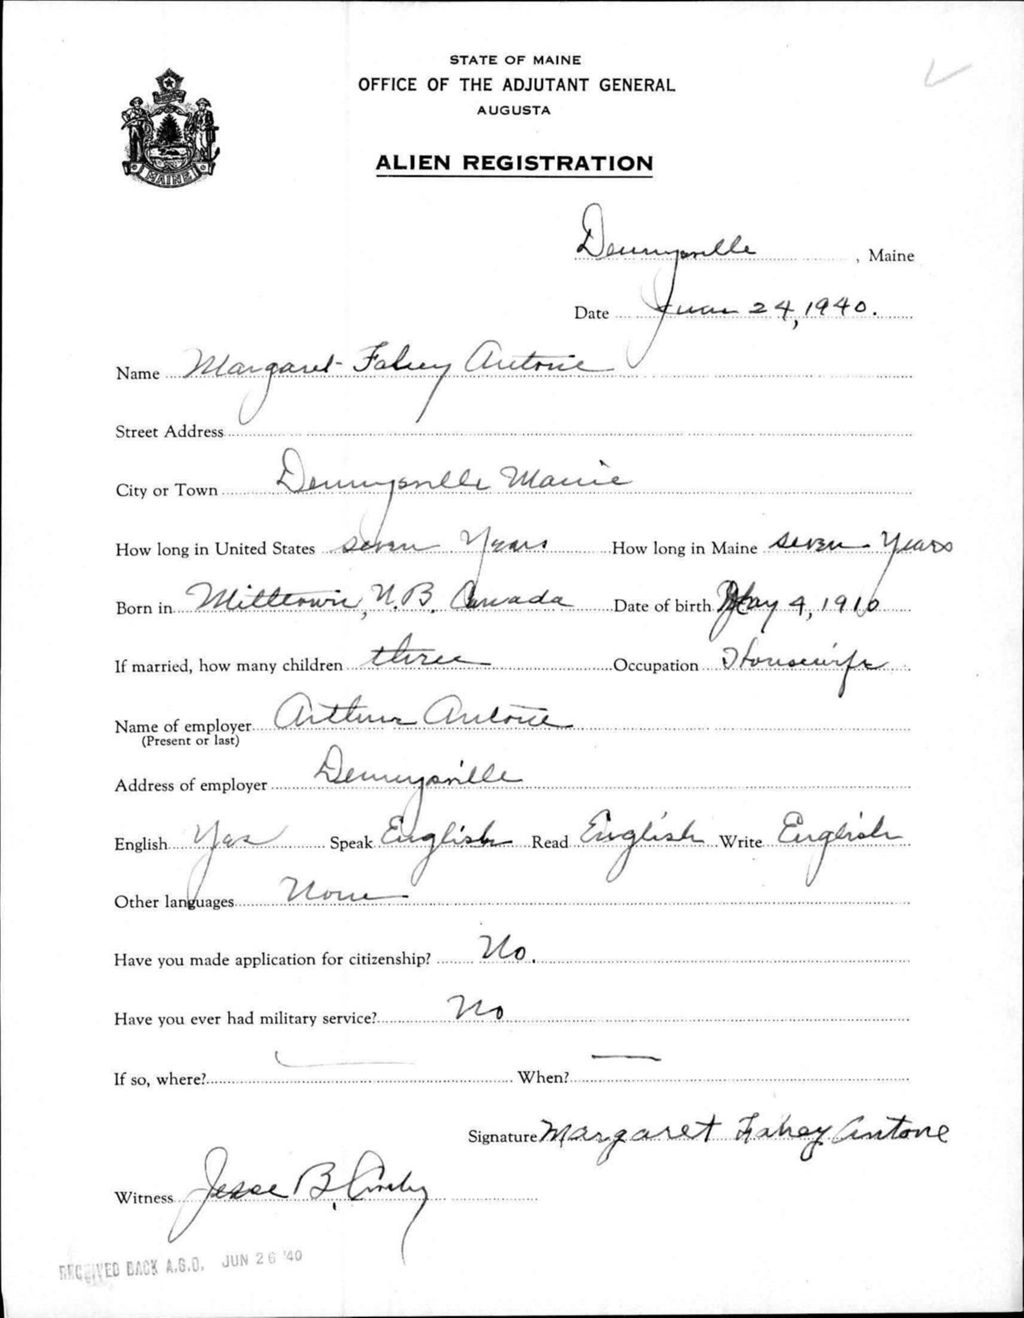 STATE OF MAINE
OFFICE OF THE ADJUTANT GENERAL
AUGUSTA
ALIEN REGISTRATION
MAINE
Dennysville, Maine
Date June 24, 1940.
Name Margaret Fahey Antone
Street Address
City or Town Dennysville Maine
How long in United States seven Years How long in Maine seven Years
Born in Milltown, N.B. Canada Date of birth May 4, 1910
If married, how many children three Occupation Housewife
Name of employer Arthur Antone
(Present or last)
Address of employer Dennysville
English Yes Speak English Read English Write English
Other languages None
Have you made application for citizenship? No.
Have you ever had military service? No
If so, where? — When? —
Signature Margaret Fahey Antone
Witness Jesse B.
RECEIVED BACK A.G.O. JUN 26 '40